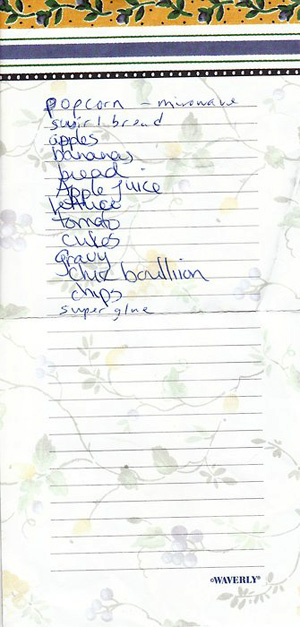 popcorn - microwave
swirl bread
apples
bananas
bread
Apple juice
lettuce
tomato
cukes
gravy
chix boullion
chips
super glue
©WAVERLY®